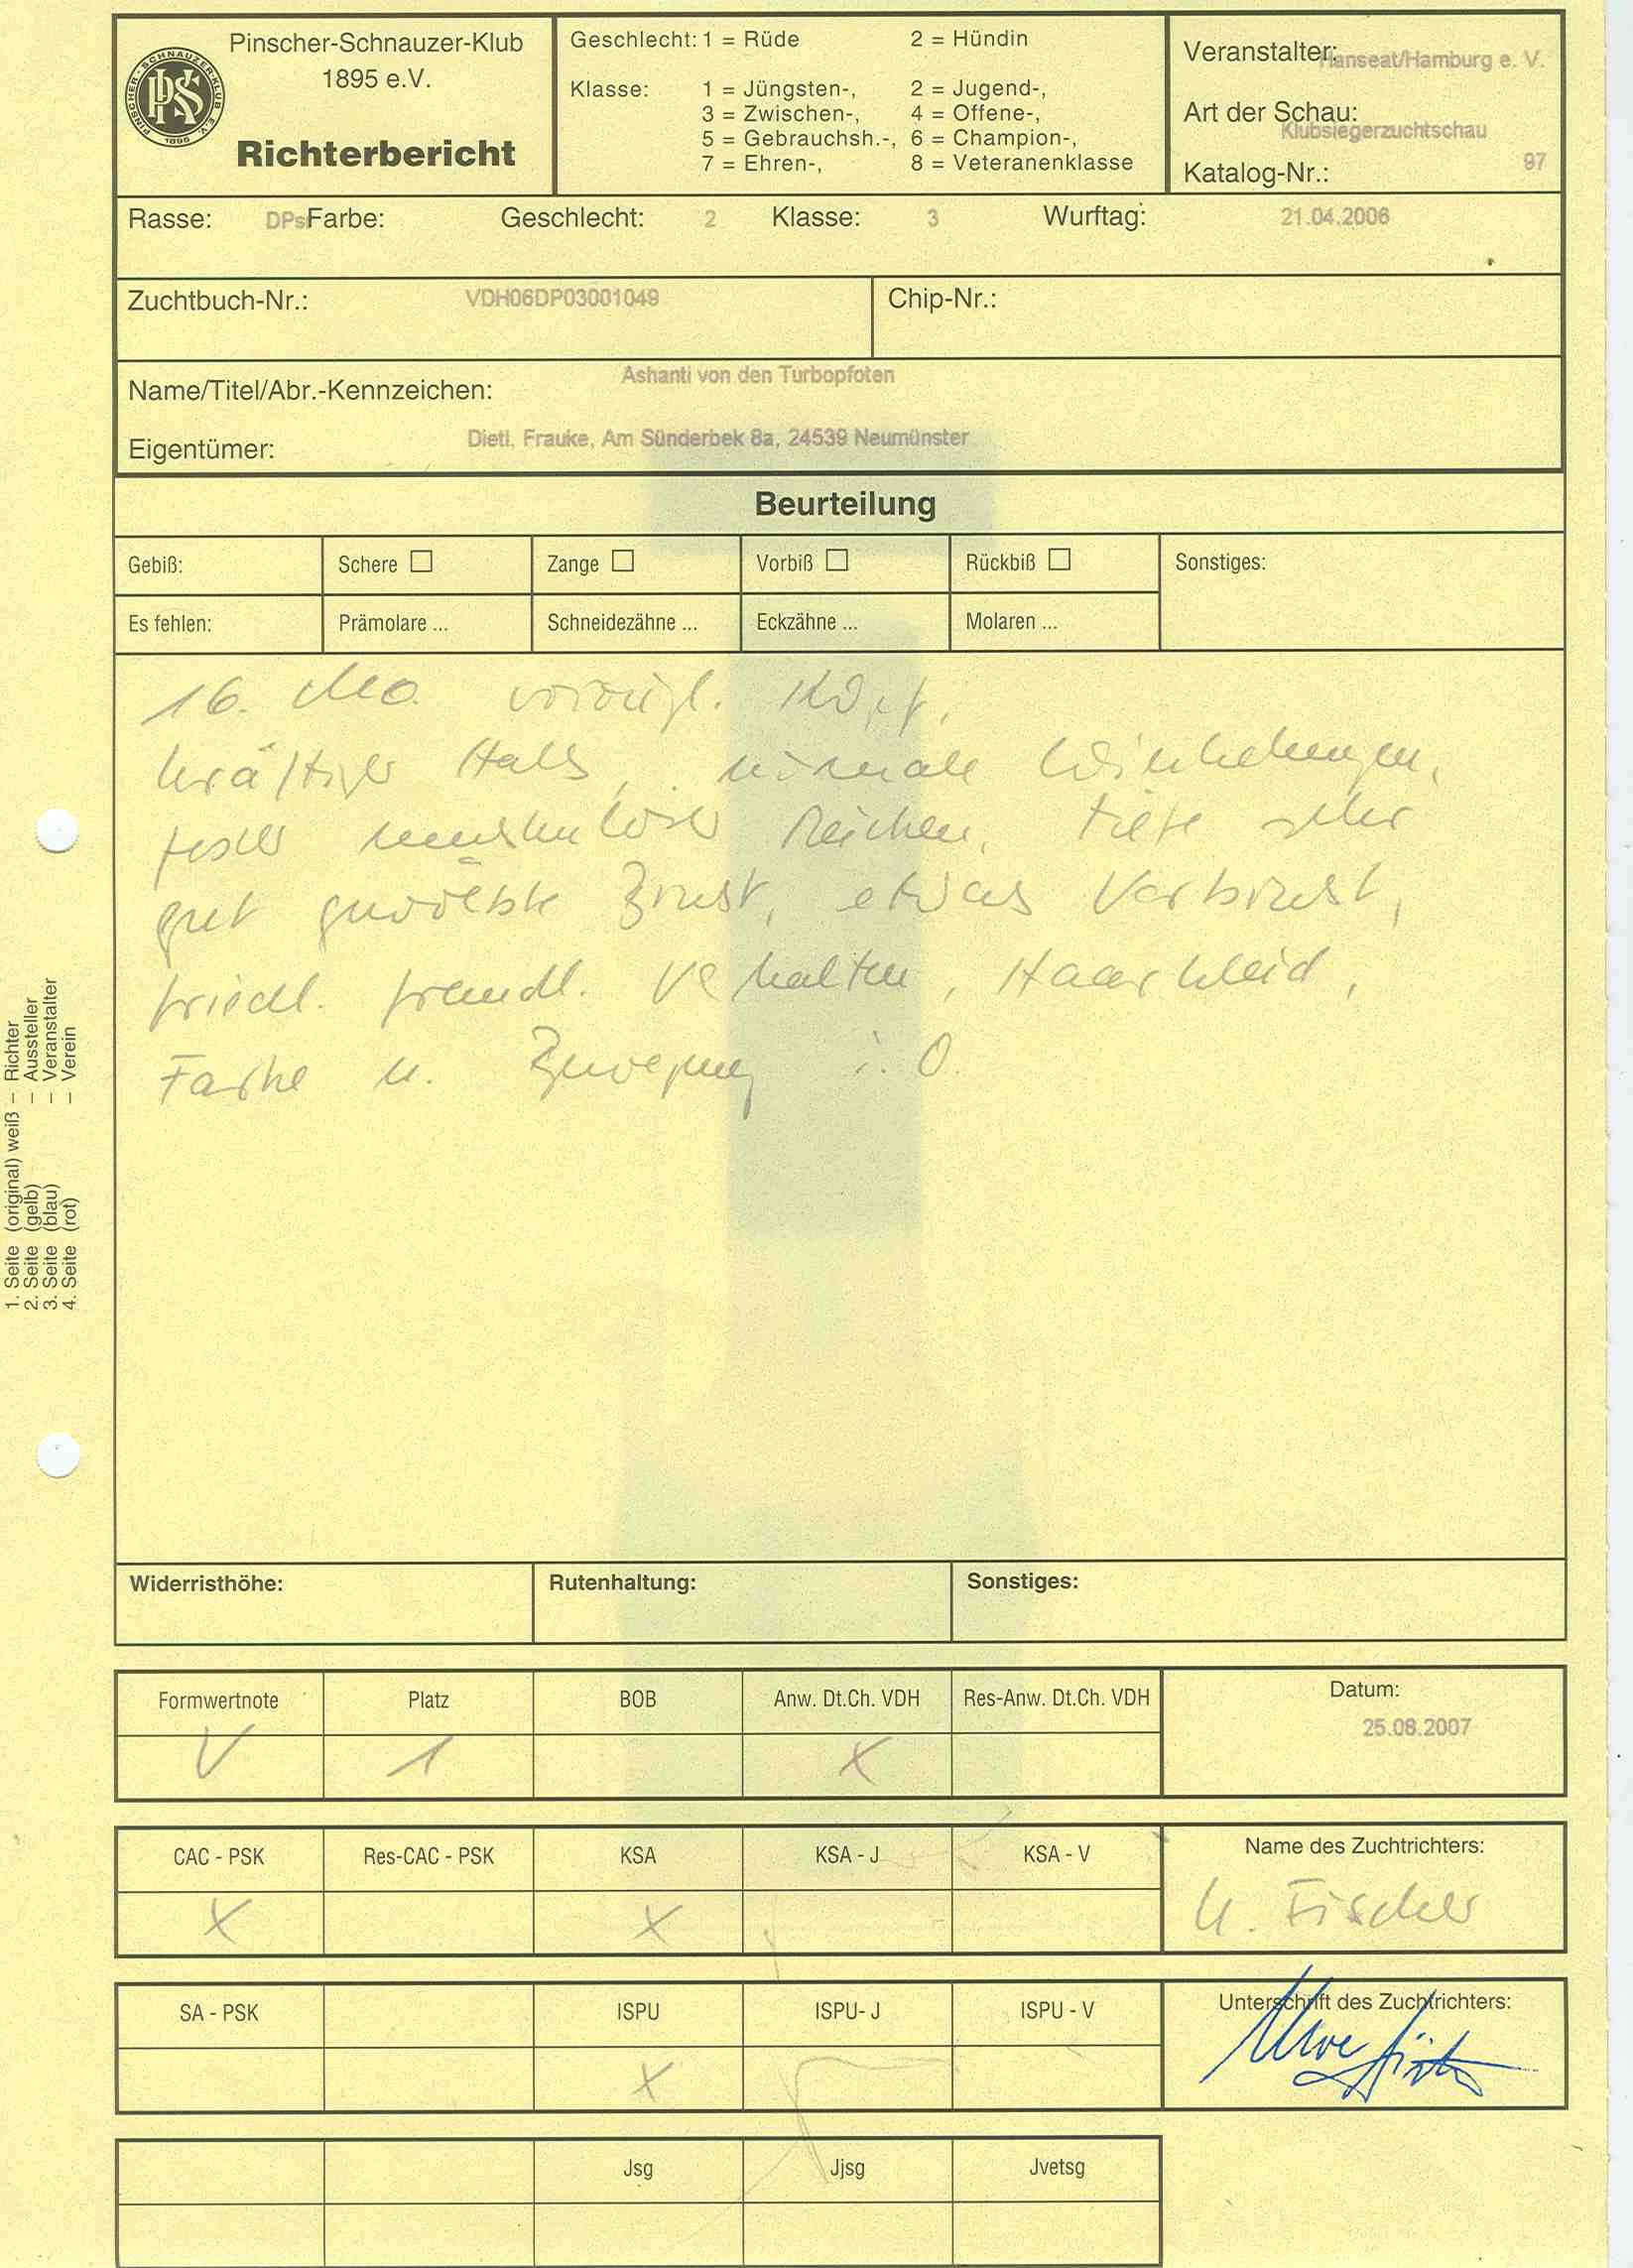 Pinscher-Schnauzer-Klub
1895 e.V.
Richterbericht
PINSCHER-SCHNAUZER-KLUB E.V.
PSK
1895
Geschlecht: 1 = Rüde 2 = Hündin
Klasse: 1 = Jüngsten-, 2 = Jugend-,
3 = Zwischen-, 4 = Offene-,
5 = Gebrauchsh.-, 6 = Champion-,
7 = Ehren-, 8 = Veteranenklasse
Veranstalter: Hanseat/Hamburg e. V.
Art der Schau:
Klubsiegerzuchtschau
Katalog-Nr.: 97
Rasse: DPs Farbe: Geschlecht: 2 Klasse: 3 Wurftag: 21.04.2006
Zuchtbuch-Nr.: VDH06DP03001049 Chip-Nr.:
Name/Titel/Abr.-Kennzeichen: Ashanti von den Turbopfoten
Eigentümer: Dietl, Frauke, Am Sünderbek 8a, 24539 Neumünster
Beurteilung
Gebiß: Schere Zange Vorbiß Rückbiß Sonstiges:
Es fehlen: Prämolare ... Schneidezähne ... Eckzähne ... Molaren ...
16. Mo. vorzügl. Kopf,
kräftiger Hals, normale Winkelungen,
fester muskulöser Rücken, tiefe sehr
gut gewölbte Brust, etwas Vorbrust,
friedl. freundl. Verhalten, Haarkleid,
Farbe u. Bewegung i. O.
1. Seite (original) weiß – Richter
2. Seite (gelb) – Aussteller
3. Seite (blau) – Veranstalter
4. Seite (rot) – Verein
Widerristhöhe: Rutenhaltung: Sonstiges:
Formwertnote Platz BOB Anw. Dt.Ch. VDH Res-Anw. Dt.Ch. VDH Datum:
V 1 X 25.08.2007
CAC - PSK Res-CAC - PSK KSA KSA - J KSA - V Name des Zuchtrichters:
X X U. Fischer
SA - PSK ISPU ISPU- J ISPU - V Unterschrift des Zuchtrichters:
X Uwe Fischer
Jsg Jjsg Jvetsg